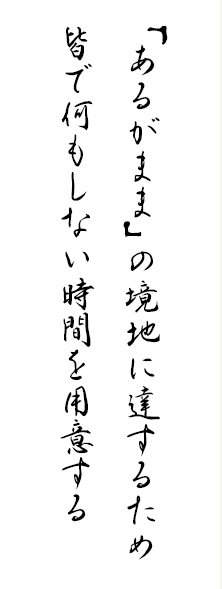 「あるがまま」の境地に達するため
皆で何もしない時間を用意する